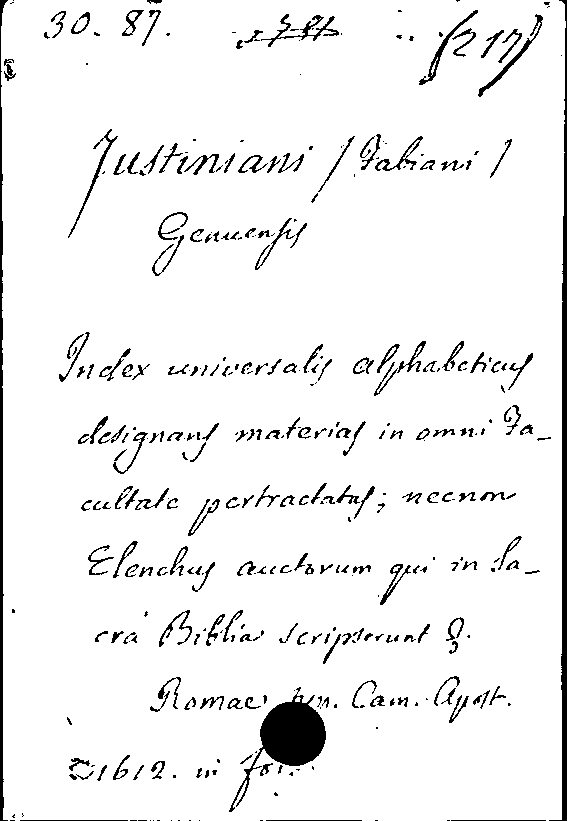 30. 87. (217)
Justiniani / Fabiani /
Genuensis
Index universalis alphabeticus
designans materias in omni Fa-
cultate pertractatas; necnon
Elenchus auctorum qui in Sa-
cra Biblia scripserunt &.
Romae typ. Cam. Apost.
1612. in fol.